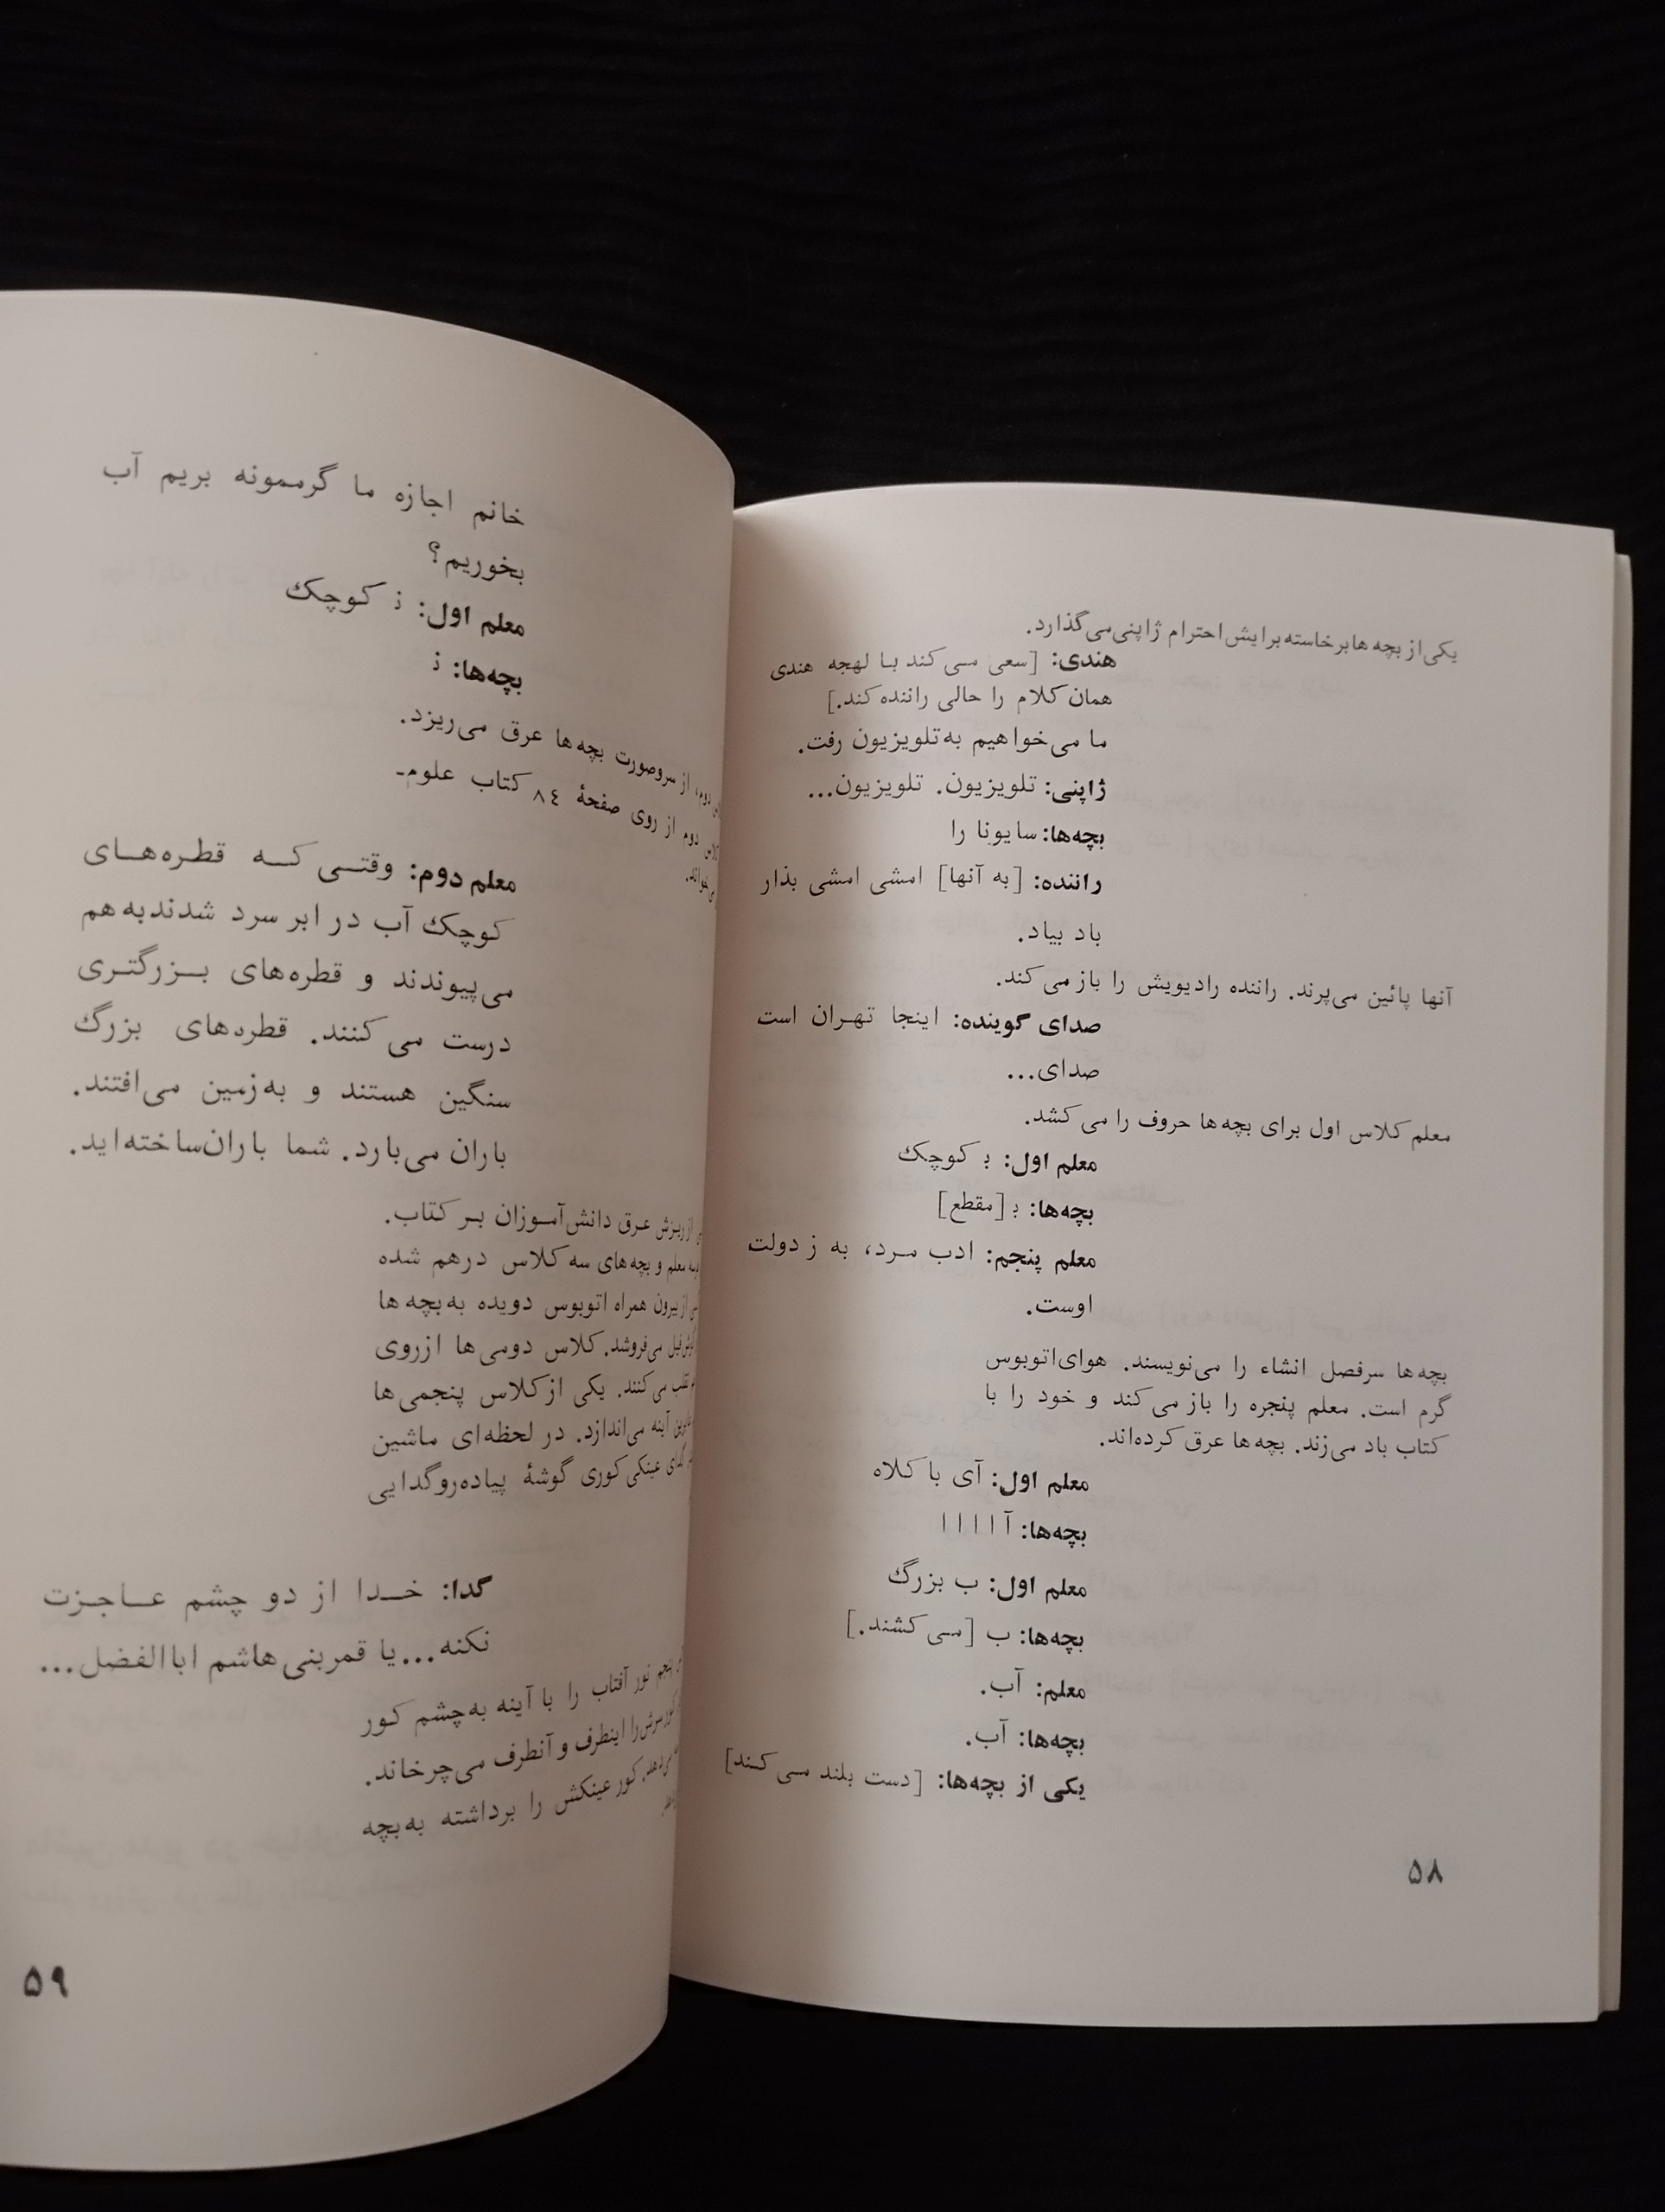 یکی از بچه ها برخاسته برایش احترام ژاپنی می گذارد.
هندی: [سعی می کند با لهجه هندی
همان کلام را حالی راننده کند.]
ما می خواهیم به تلویزیون رفت.
ژاپنی: تلویزیون. تلویزیون...
بچه‌ها: سایونا را
راننده: [به آنها] امشی امشی بذار
باد بیاد.
آنها پائین می‌پرند. راننده رادیویش را باز می کند.
صدای گوینده: اینجا تهران است
صدای...
معلم کلاس اول برای بچه ها حروف را می کشد.
معلم اول: بـ کوچک
بچه‌ها: بـ [مقطع]
معلم پنجم: ادب مرد، به ز دولت
اوست.
بچه ها سرفصل انشاء را می‌نویسند. هوای اتوبوس
گرم است. معلم پنجره را باز می کند و خود را با
کتاب باد می‌زند. بچه ها عرق کرده‌اند.
معلم اول: آی با کلاه
بچه‌ها: آ ا ا ا ا
معلم اول: ب بزرگ
بچه‌ها: ب [می کشند.]
معلم: آب.
بچه‌ها: آب.
یکی از بچه‌ها: [دست بلند می کند]
۵۸
خانم اجازه ما گرممونه بریم آب
بخوریم؟
معلم اول: نـ کوچک
بچه‌ها: نـ
دوم، از سروصورت بچه ها عرق می‌ریزد.
دوم از روی صفحهٔ ۸٤ کتاب علوم-
معلم دوم: وقتی که قطره‌های
کوچک آب در ابر سرد شدند به هم
می‌پیوندند و قطره‌های بزرگتری
درست می کنند. قطره‌های بزرگ
سنگین هستند و به زمین می‌افتند.
باران می‌بارد. شما باران ساخته‌اید.
از ریزش عرق دانش‌آموزان بر کتاب.
معلم و بچه‌های سه کلاس درهم شده
از بیرون همراه اتوبوس دویده به بچه ها
می‌فروشد. کلاس دومی ها ازروی
تقلب می کنند. یکی از کلاس پنجمی ها
آینه می‌اندازد. در لحظه‌ای ماشین
گدای عینکی کوری گوشهٔ پیاده‌رو گدایی
گدا: خدا از دو چشم عاجزت
نکنه... یا قمربنی هاشم اباالفضل...
پنجم نور آفتاب را با آینه به چشم کور
کور سرش را اینطرف و آنطرف می‌چرخاند.
کور عینکش را برداشته به بچه
۵۹